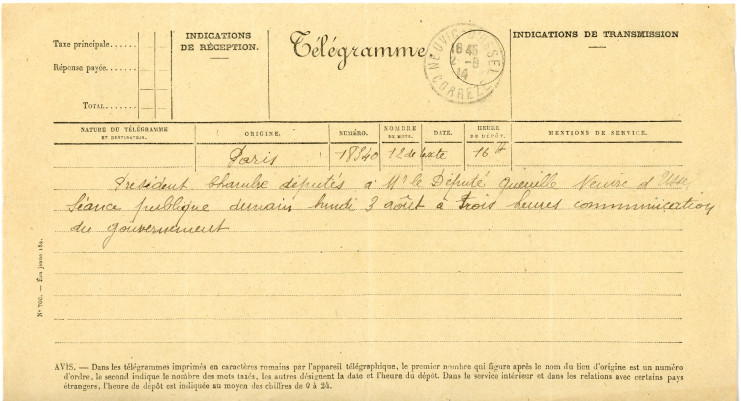 Taxe principale......
Réponse payée....
TOTAL........
INDICATIONS
DE RÉCEPTION.
Télégramme.
NEUVIC D'USSEL
18 45
2 -8
14
CORREZE
INDICATIONS DE TRANSMISSION
NATURE DU TÉLÉGRAMME
ET DESTINATEUR.
ORIGINE.
NUMÉRO.
NOMBRE
DE MOTS.
DATE.
HEURE
DE DÉPÔT.
MENTIONS DE SERVICE.
Paris 18540 12 de taxte 16 H
Président Chambre députés à Mr le Député Queuille Neuvic d'Ussel
Séance publique demain lundi 3 août à trois heures communication
du gouvernement
AVIS. — Dans les télégrammes imprimés en caractères romains par l'appareil télégraphique, le premier nombre qui figure après le nom du lieu d'origine est un numéro
d'ordre, le second indique le nombre des mots taxés, les autres désignent la date et l'heure du dépôt. Dans le service intérieur et dans les relations avec certains pays
étrangers, l'heure de dépôt est indiquée au moyen des chiffres de 0 à 24.